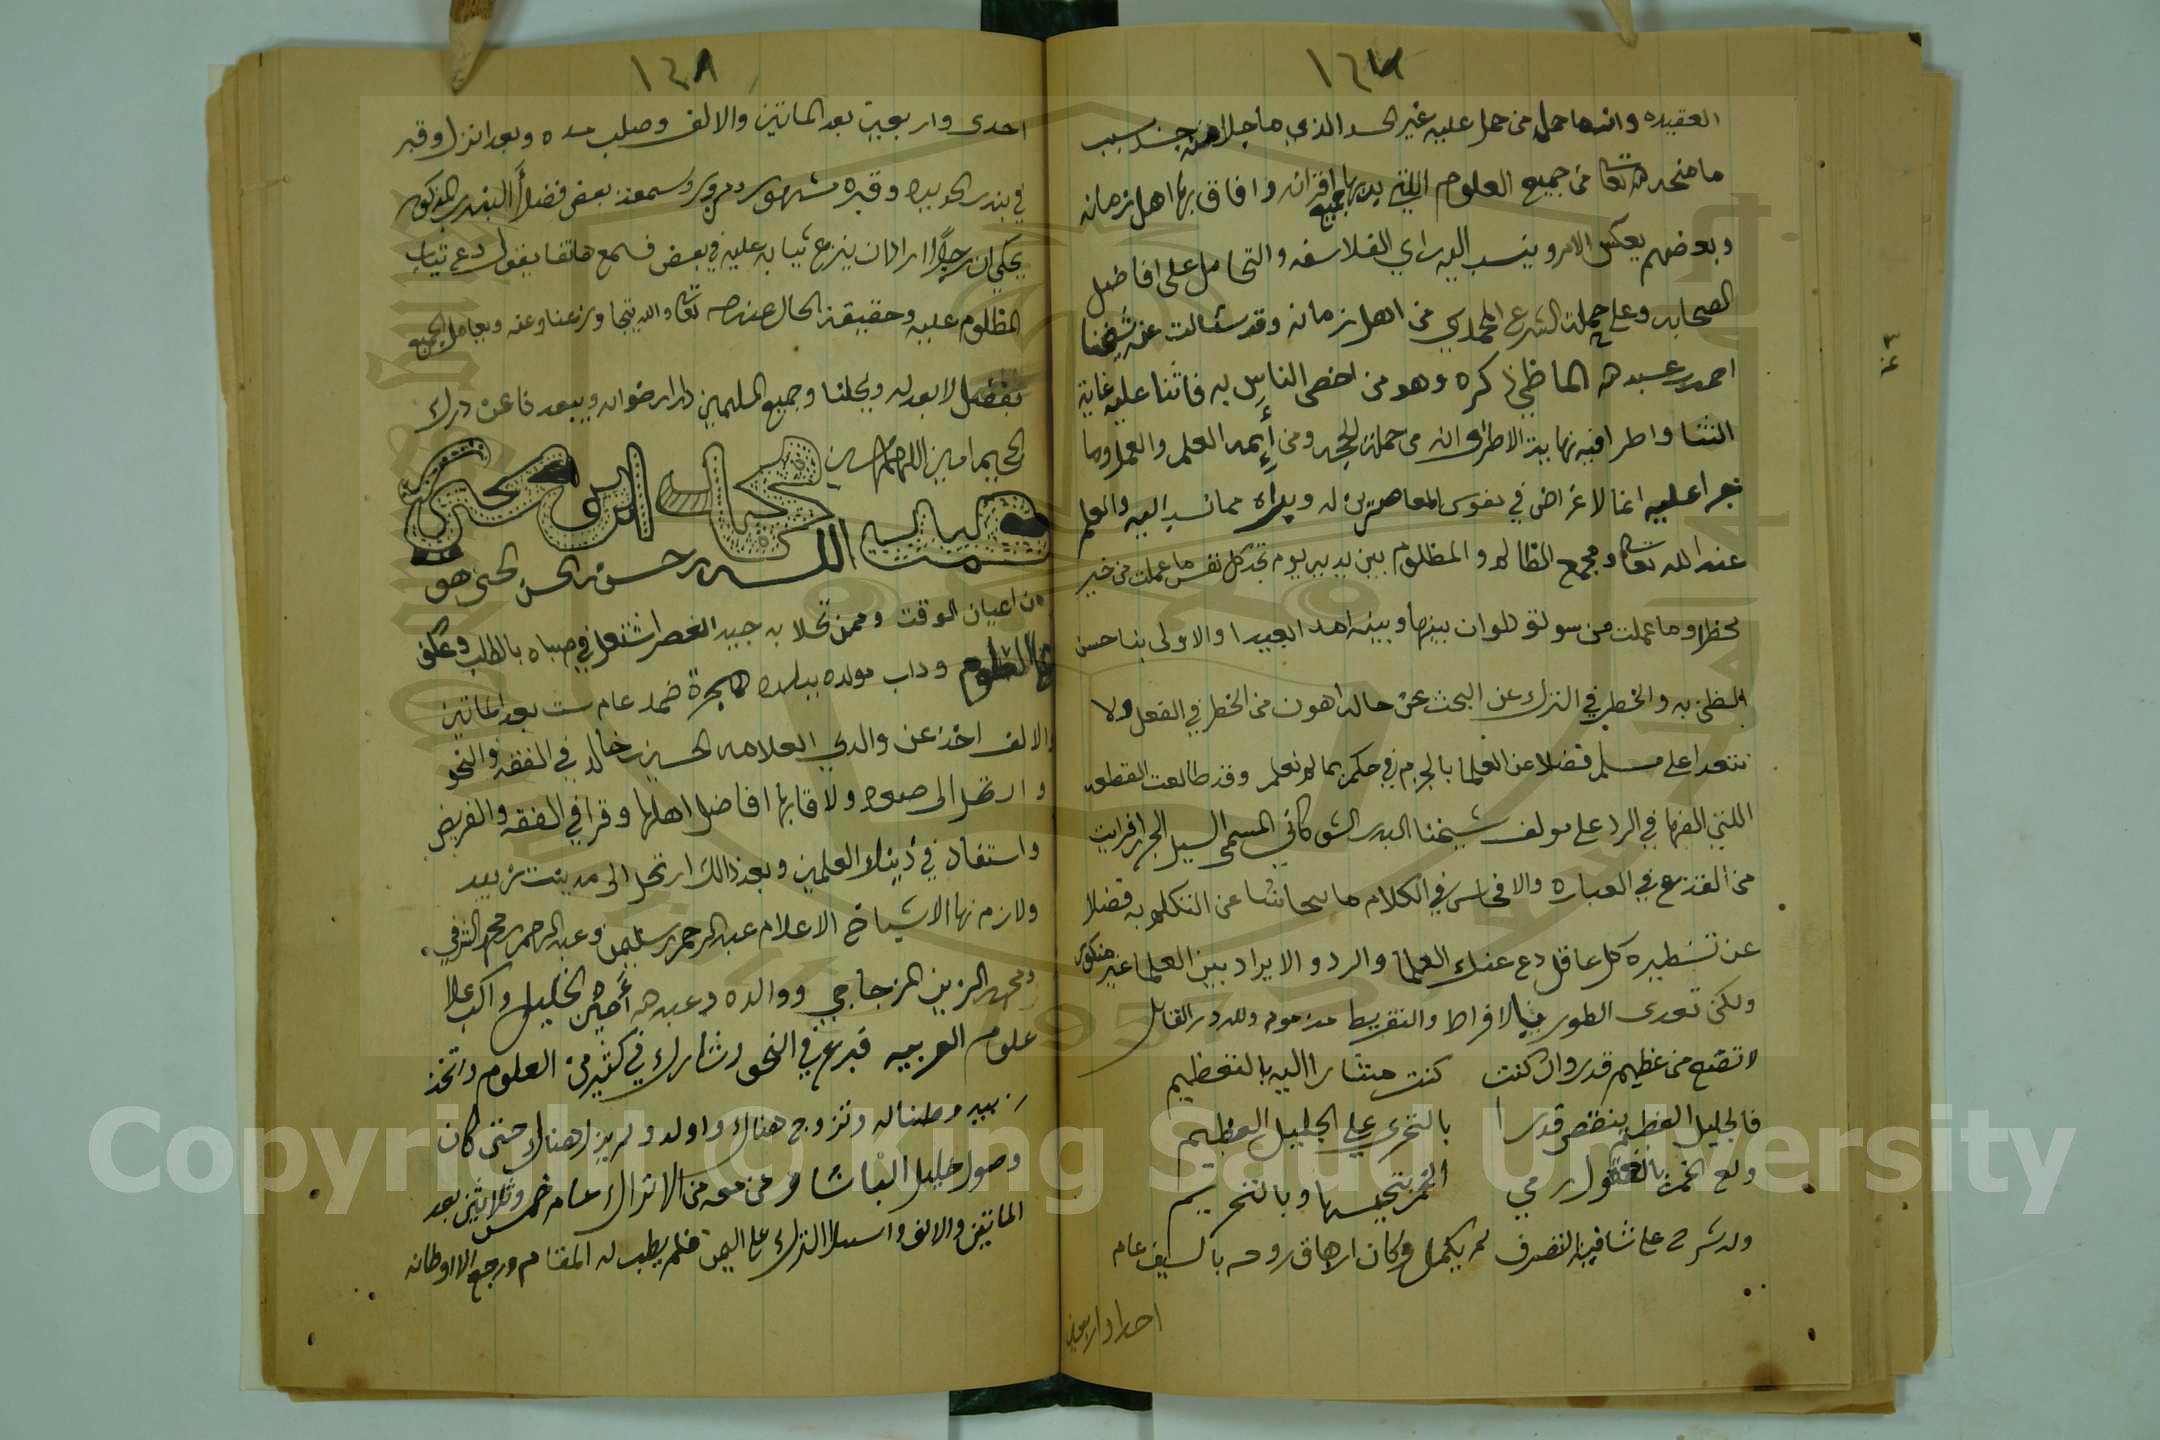 ١٤٧
العقيده وانما حمل من حمل عليه غير الحسد الذي ما خلا منه جسد بسبب
ما منحه الله تعالى من جميع العلوم اللتي بدبها جميع اقرانه وافاق بها اهل زمانه
وبعضهم يعكس الامر وينسب اليه راي الفلاسفه والتحامل على افاضل
الصحابه وعلى حملت الشرع المحمدي من اهل زمانه وقد سئالت عنه شيخنا
احمد بن عبد الله الماظي ذكره وهو من اخص الناس به فاثنا عليه غاية
الثنا واطرا فيه نهاية الاطرى انه من حملة الحجه ومن أيمه العلم والعمل وما
جرا عليه انما لاغراض في نفوس المعاصرين له وبراه مما نسب اليه والعلم
عند الله تعالى ومجمع الظالم والمظلوم بين يديه يوم تجد كل نفس ما عملت من خير
محظرا وما عملت من سو تود لو ان بينها وبينه امدا بعيدا والاولى بنا حسن
الظن به والخطر في الترك عن البحث عن حاله اهون من الخطر في الفعل ولا
نتعدا على مسلم فضلا عن العلما بالجرم في حكم بما لم نعلم وقد طالعت القطعه
اللتي الفها في الرد على مولف شيخنا البدر الشوكاني المسمى السيل الجرار فرايت
من القذع في العباره والافحاش في الكلام ما يتحاشا عن التكلم به فضلا
عن تسطيره كل عاقل دع عنك العلما والرد والايراد بين العلما غير منكور
ولكن تعدى الطور بالافراط والتفريط مذموم ولله در القايل
لا تضع من عظيم قدر وان كنت كنت مشارا اليه بالتعظيم
فالجليل العظيم ينقص قدرا بالتجري على الجليل العظيم
ولع الخمر بالعقول رمي الخمر بتنجيسها وبالتحريم
وله شرح على شافية التصرف لم يكمل وكان ازهاق روحه بالسيف عام
احدا واربعين
١٤٨
احدى واربعين بعد المائتين والالف وصلب مده وبعد انزل وقبر
في بندر الحديده وقبره مشهور ومزور وسمعت بعض فضلأ البندر المذكور
يحكي ان رجلا اراد ان ينزع ثيابه عليه في بعض فسمع هاتفا يقول دع ثياب
المظلوم عليه وحقيقة الحال عند الله تعالى والله يتجاوز عنا وعنه ويعامل الجميع
بفضل لا بعدله ويحلنا وجميع المسلمين دار رضوانه ويبعدنا عن درك
الجحيم امين اللهم امين
هبة الله رحمن الحسن الحي هو
من اعيان الوقت وممن تحلا به جيد العصر اشتغل في صباه بالطلب وعكف
وداب مولده ببلده هجرة ضمد عام ست بعد المائتين
والالف اخذ عن والدي العلامه الحسين خالد في الفقه والنحو
وارتحل الى صعده ولاقا بها افاضل اهلها وقرا في الفقه والفريض
واستفاد في ذينك العلمين وبعد ذالك ارتحل الى مدينت زبيد
ولازم بها الاشياخ الاعلام عبد الرحمن بن سليمن وعبد الرحمن بن محمد الشرفي
ومحمد الزين المزجاجي ووالده وعبد الله الخليل واكب على
علوم العربيه فبرع في النحو وشارك في كثير من العلوم واتخذ
زبيد وطنا له وتزوج هناك واولد ولم يزل هناك حتى كان
وصول خليل الباشا ومن معه من الاتراك عام خمس وثلاثين بعد
المائتين والالف واستلا الترك على اليمن فلم يطب له المقام ورجع الا اوطانه
Copyright © King Saud University
1957